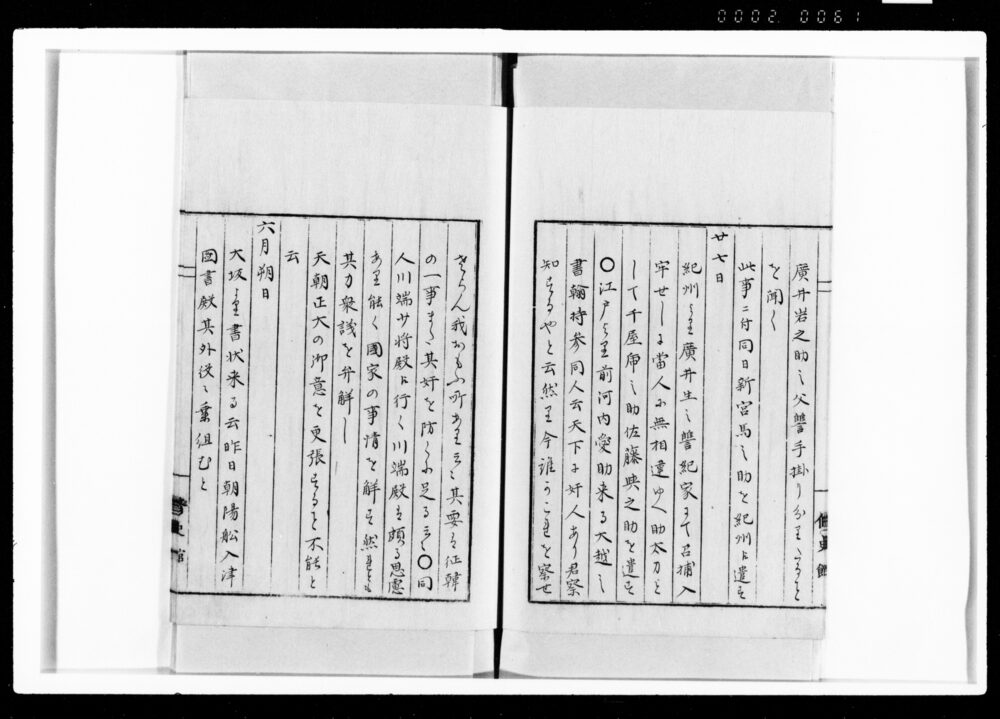 0002 0061
廣井岩之助之父讐手掛り分り候こと
を聞く
此事ニ付同日新宮馬之助を紀州に遣す
廿七日
紀州より廣井生之讐紀家にて召捕入
牢せしに當人に無相違ゆへ助太刀と
して千屋乕之助佐藤與之助を遣す
〇江戸より前河内愛助来る大越之
書翰持参同人云天下に奸人あり君察
知するやと云然り今誰かこれを察せ
さらん我おもふ所あり其要は征韓
の一事また其奸を防くに足る〇同
人川端少将殿に行く川端殿は頗る思慮
あり能く國家の事情を解す然れとも
其力衆議を弁解し
天朝正大の御意を更張すること不能と
云
六月朔日
大坂より書状来る云昨日朝陽舩入津
圖書殿其外役々乗組むと